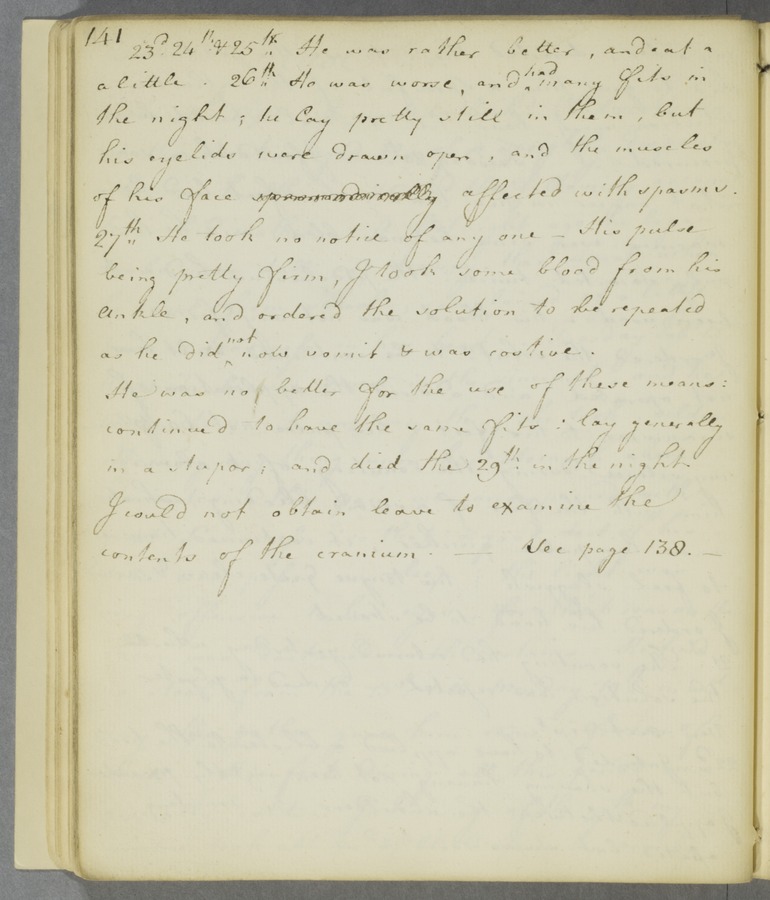 141
23d. 24th. & 25th. He was rather better, and eat a
a little. 26th. He was worse, and had many fits in
the night; he lay pretty still in them, but
his eyelids were drawn open, and the muscles
of his face spasmodically affected with spasms.
27th. He took no notice of any one — His pulse
being pretty firm, I took some blood from his
ankle, and ordered the solution to be repeated
as he did not now vomit & was costive.
He was no better for the use of these means:
continued to have the same fits: lay generally
in a stupor; and died the 29th. in the night.
I could not obtain leave to examine the
contents of the cranium. — See page 138. —